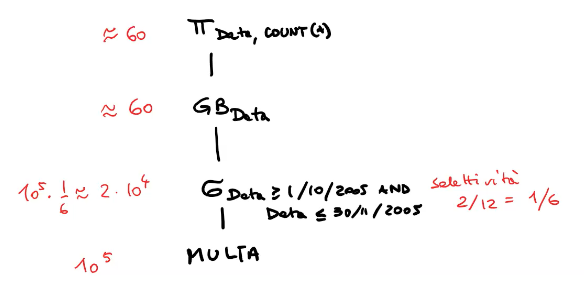 ≈ 60 π Data, COUNT(*)
≈ 60 GB Data
10⁵ · 1/6 ≈ 2 · 10⁴ σ Data ≥ 1/10/2005 AND
Data ≤ 30/11/2005
selettività
2/12 = 1/6
10⁵ MULTA